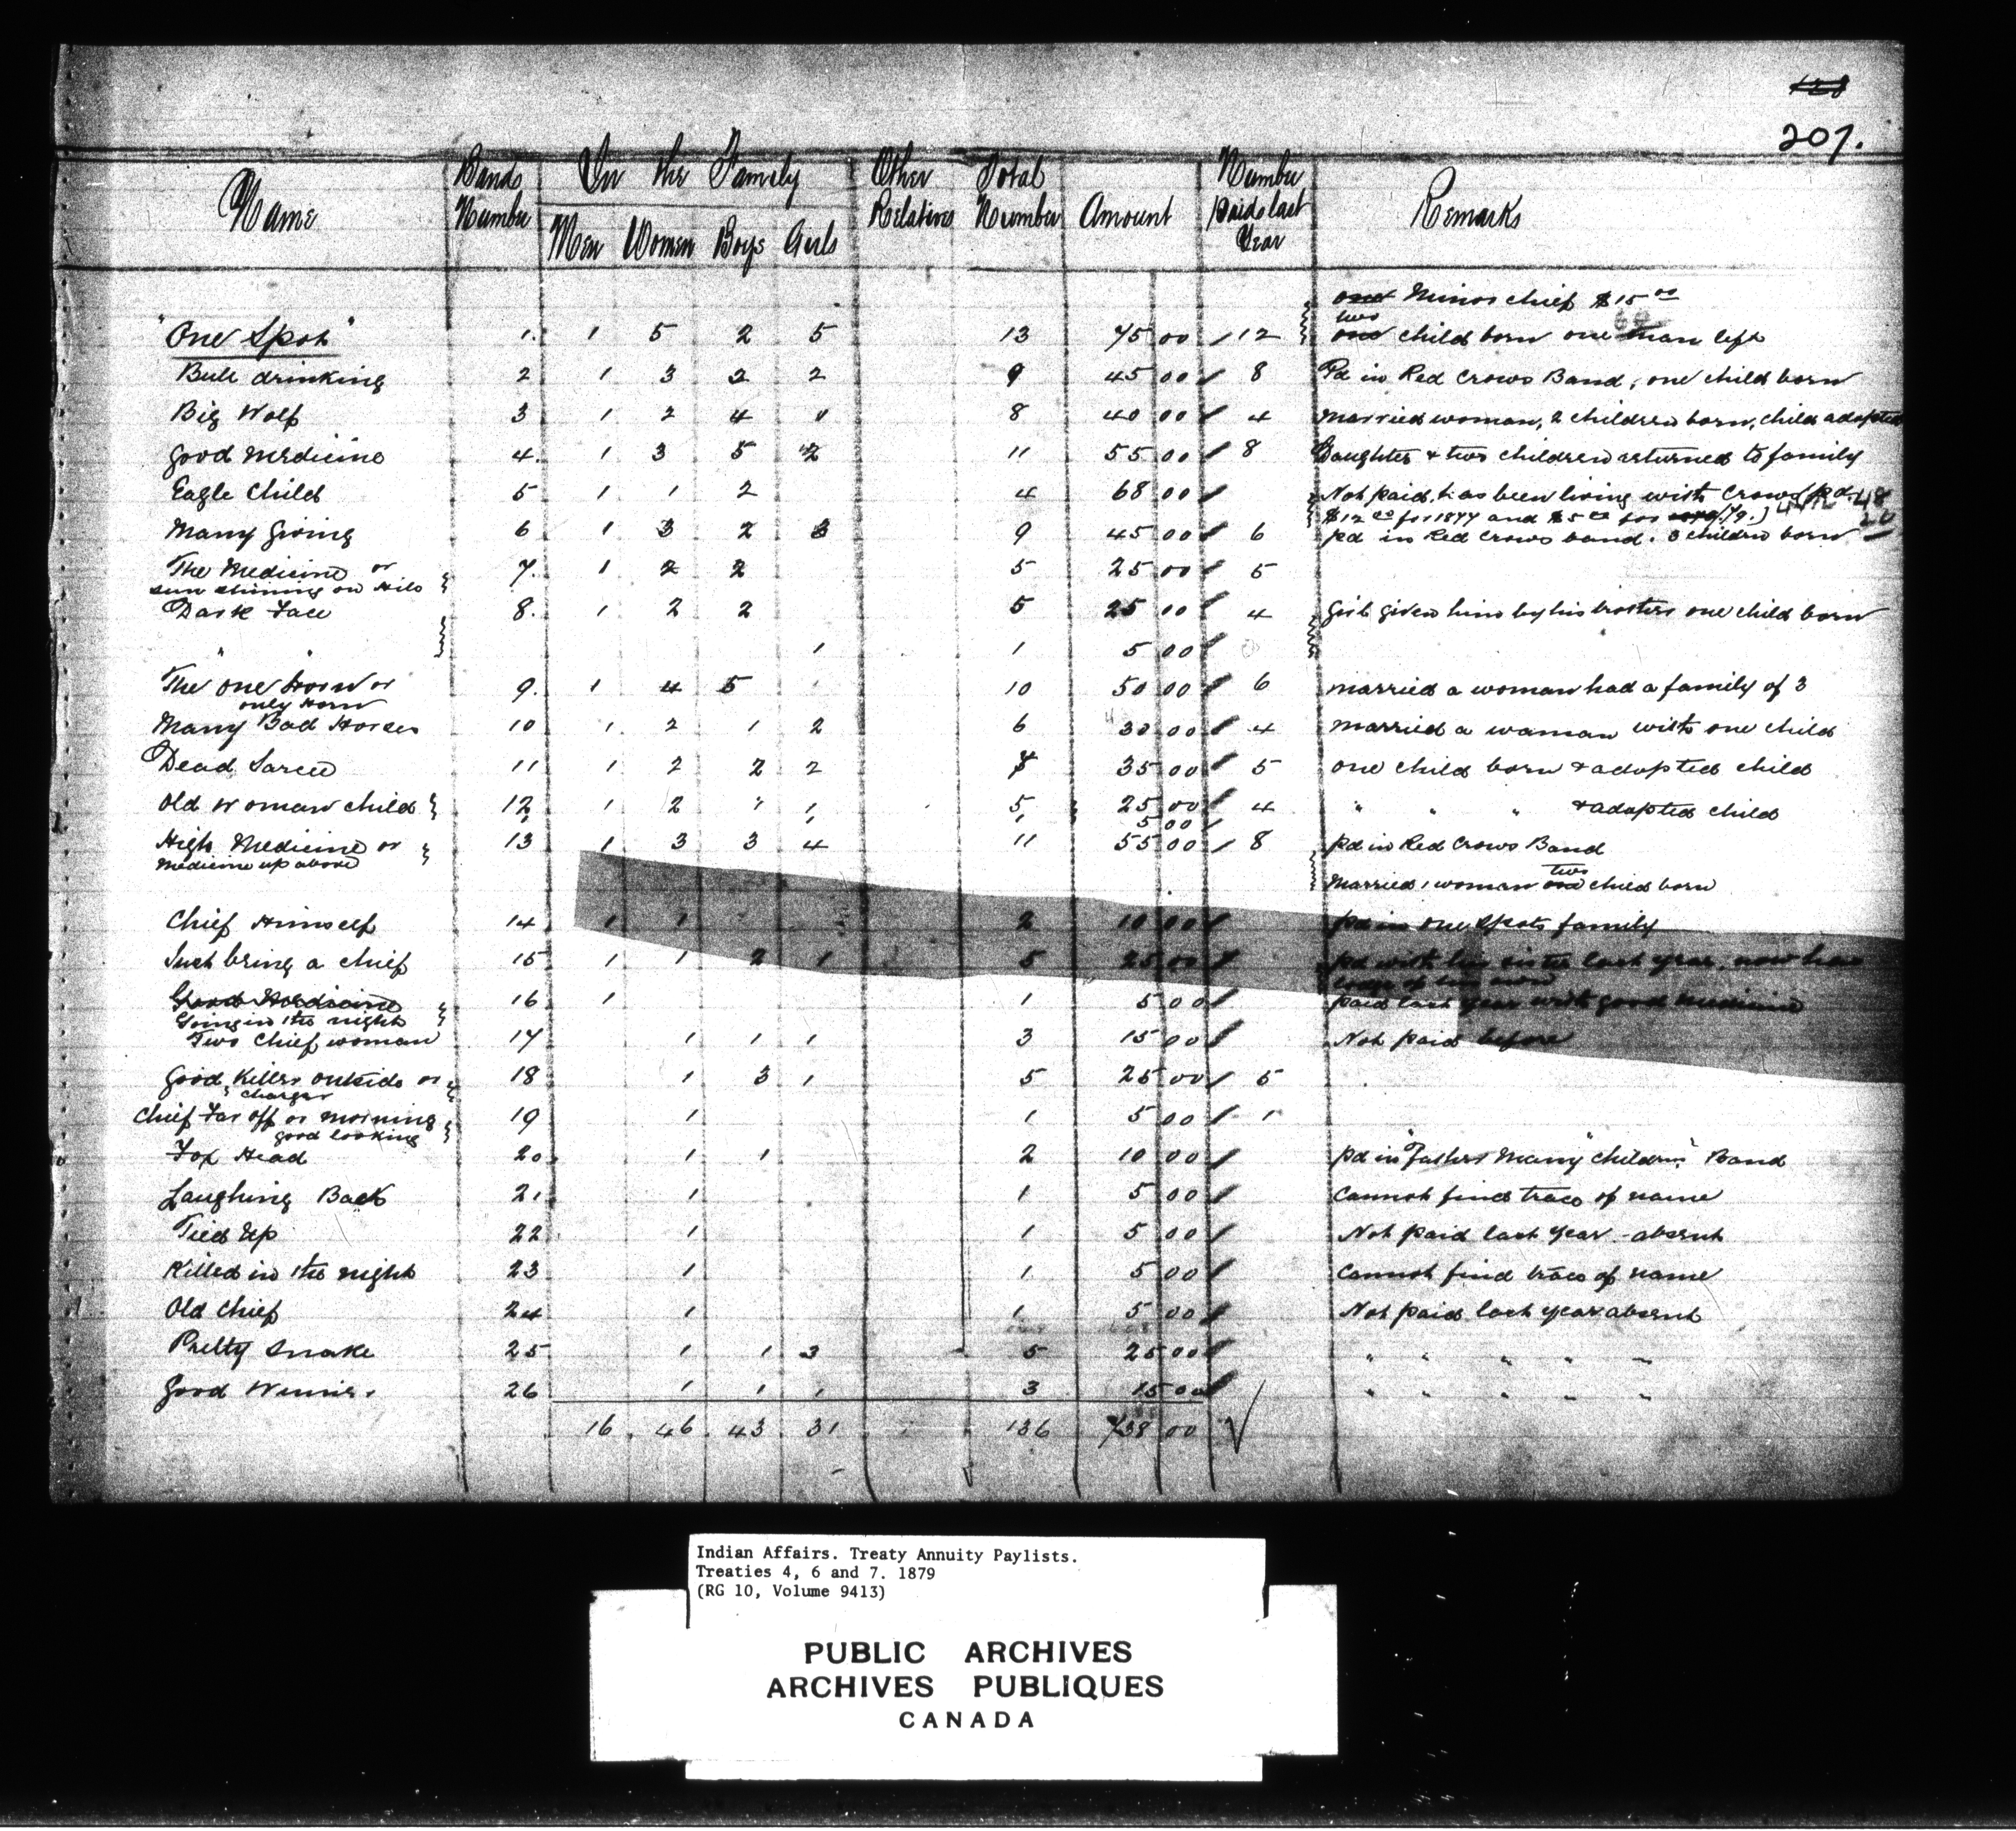 128
207.
Name Bands Number In the Family Men Women Boys Girls Other Relatives Total Number Amount Number Paid last Year Remarks
Minor chief $15 00
"One Spot" 1. 1 5 2 5 13 75 00 12 two child born one man left
Bull drinking 2 1 3 2 2 9 45 00 8 Pd in Red Crows Band, one child born
Big Wolf 3 1 2 4 1 8 40 00 4 Married woman, 2 children born, child adopted
Good Medicine 4. 1 3 5 2 11 55 00 8 Daughter & two children returned to family
Eagle Child 5 1 1 2 4 68 00 Not paid, has been living with Crows (pd. 48
$12 00 for 1877 and $5 00 for 78/79.) 20
Many Giving 6 1 3 2 3 9 45 00 6 pd in Red Crows band. 3 children born
The Medicine or 7. 1 2 2 5 25 00 5
sun shining on
Dark Face 8. 1 2 2 5 25 00 4 Girl given him by his brothers one child born
" " 1 1 5 00
The One Horn or 9. 1 4 5 10 50 00 6 married a woman had a family of 3
only Horn
Many Bad Horses 10 1 2 1 2 6 30 00 4 Married a woman with one child
Dead Sarcee 11 1 2 2 2 7 35 00 5 one child born & adopted child
Old Woman child 12 1 2 1 1 5 25 00 4 " " " & adopted child
1 1 1 5 00
High Medicine or 13 1 3 3 4 11 55 00 8 pd in Red Crows Band
Medicine up above
Married 1 woman two child born
Chief Himself 14 1 1 2 10 00 pd in One Spots family
Such bring a chief 15 1 1 2 1 5 25 00 pd with his sister last year, now has
lodge of his own
Good Medicine 16 1 1 5 00 paid last year with good Medicine
Going in the night
Two Chief woman 17 1 1 1 3 15 00 Not paid before
Good Killer outside or 18 1 3 1 5 25 00 5
charger
Chief Far off or morning 19 1 1 5 00 1
good looking
Fox Head 20. 1 1 2 10 00 pd in "Fathers Many Children" Band
Laughing Back 21 1 1 5 00 Cannot find trace of name
Tied Up 22 1 1 5 00 Not paid last year - absent
Killed in the night 23 1 1 5 00 Cannot find trace of name
Old Chief 24 1 1 5 00 Not paid last year absent
Pretty Snake 25 1 1 3 5 25 00 " " " " "
Good Winner. 26 1 1 1 3 15 00 " " " " "
16 46 43 31 136 738 00
Indian Affairs. Treaty Annuity Paylists.
Treaties 4, 6 and 7. 1879
(RG 10, Volume 9413)
PUBLIC ARCHIVES
ARCHIVES PUBLIQUES
CANADA